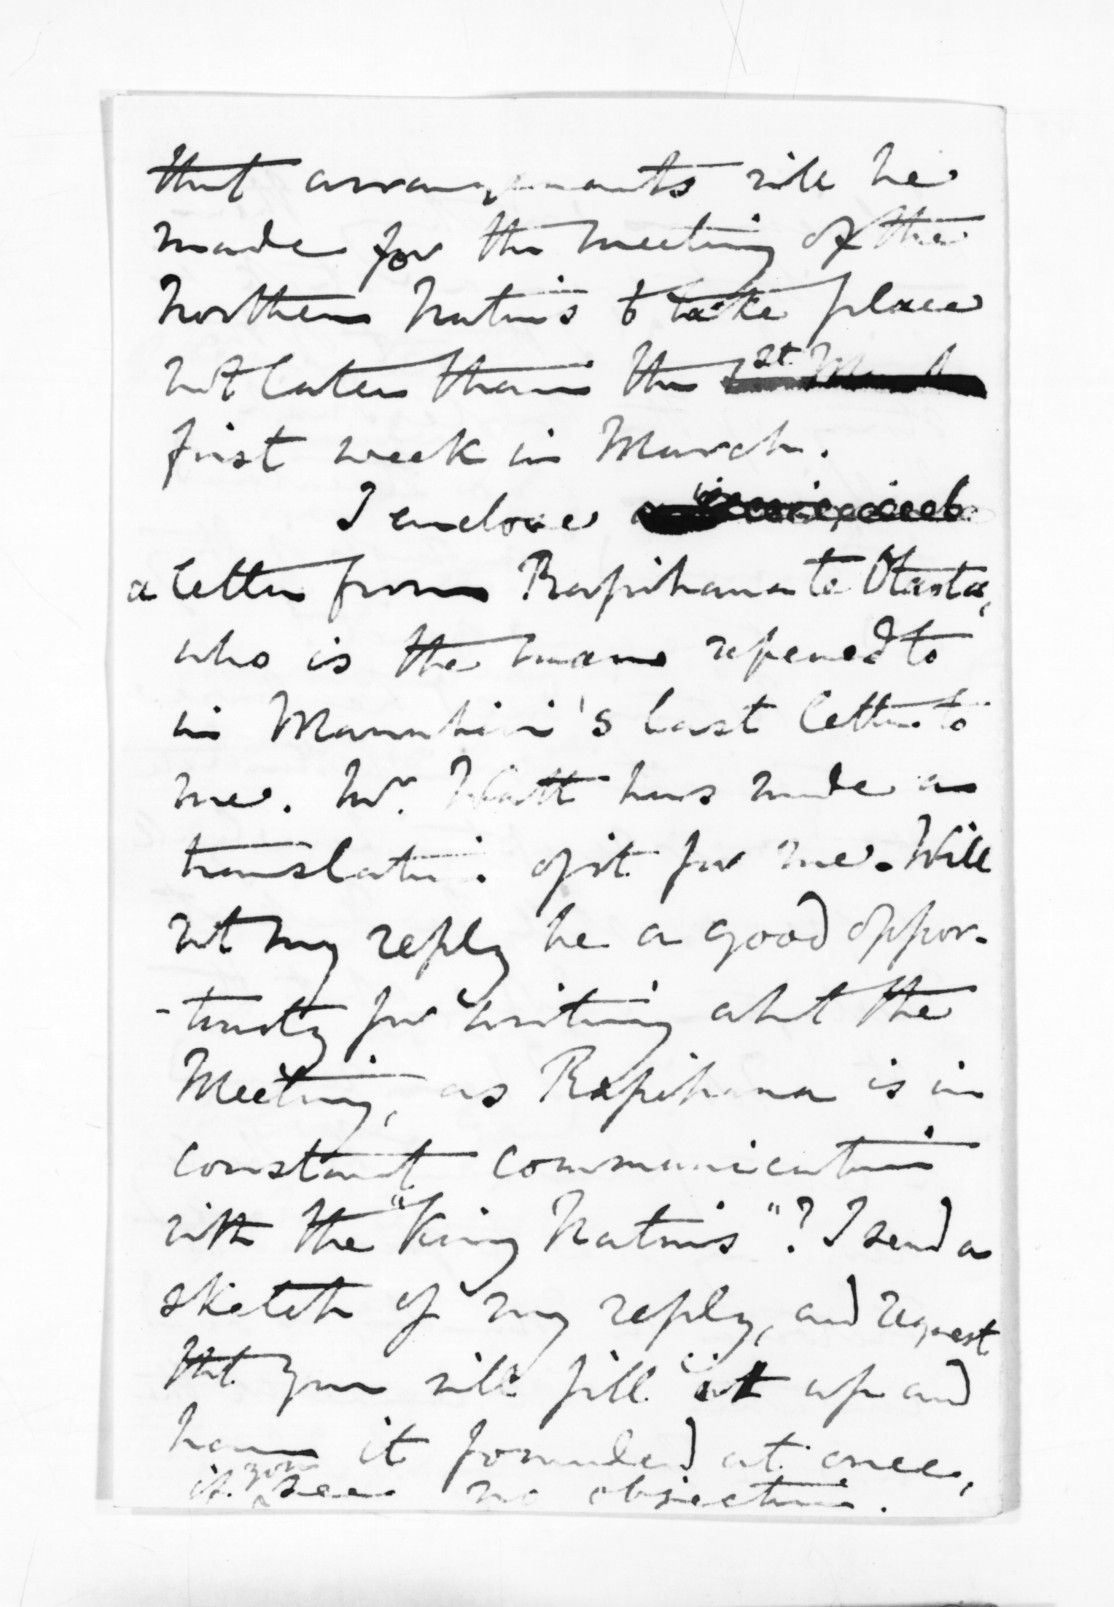 that arrangements will be
made for the meeting of the
Northern Natives to take place
not later than the 1st March
first week in March.
I enclose
a letter from Rapihana te Otaota,
who is the man referred to
in Manuhiri's last letter to
me. Mr. Watt has made a
translation of it for me. Will
not my reply be a good oppor-
-tunity for writing abt the
Meeting, as Rapihana is in
constant communication
with the "King Natives"? I send a
sketch of my reply, and request
that you will fill it up and
have it forwarded at once,
if you see no objection.